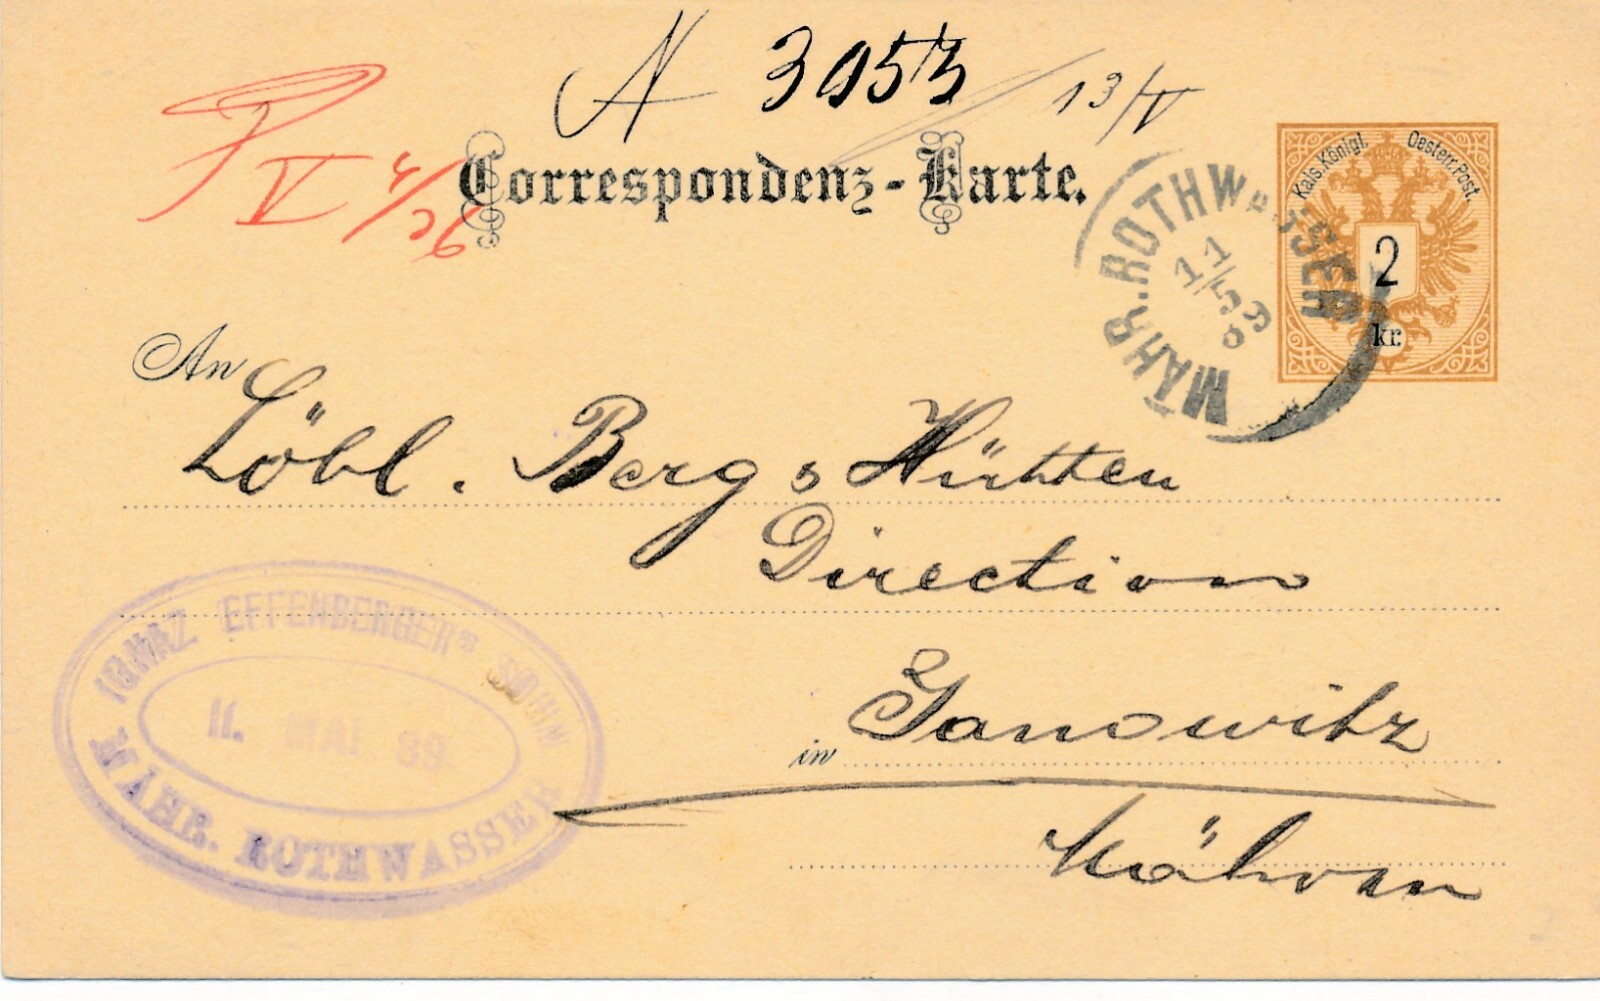 N 3953 13/V
V
Correspondenz-Karte.
Kais. Königl. Oesterr. Post.
2
kr.
MÄHR. ROTHWASSER
11/5
89
An
Löbl. Berg & Hütten
Direction
in Janowitz
Mähren
IGNAZ EFFENBERGER'S SÖHNE
11. MAI 89
MÄHR. ROTHWASSER